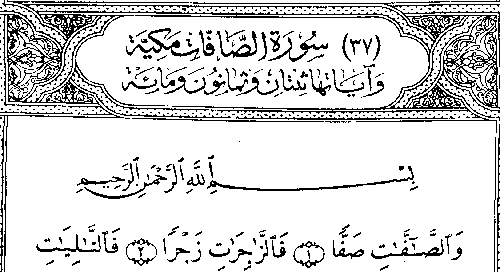 (٣٧) سُورَةُ الصَّافَّاتِ مَكِيَّة
وَآيَاتُهَا ثِنْتَانِ وَثَمَانُونَ وَمِائَةٌ
بِسْمِ ٱللَّهِ ٱلرَّحْمَٰنِ ٱلرَّحِيمِ
وَٱلصَّٰٓفَّٰتِ صَفًّا ١ فَٱلزَّٰجِرَٰتِ زَجْرًا ٢ فَٱلتَّٰلِيَٰتِ